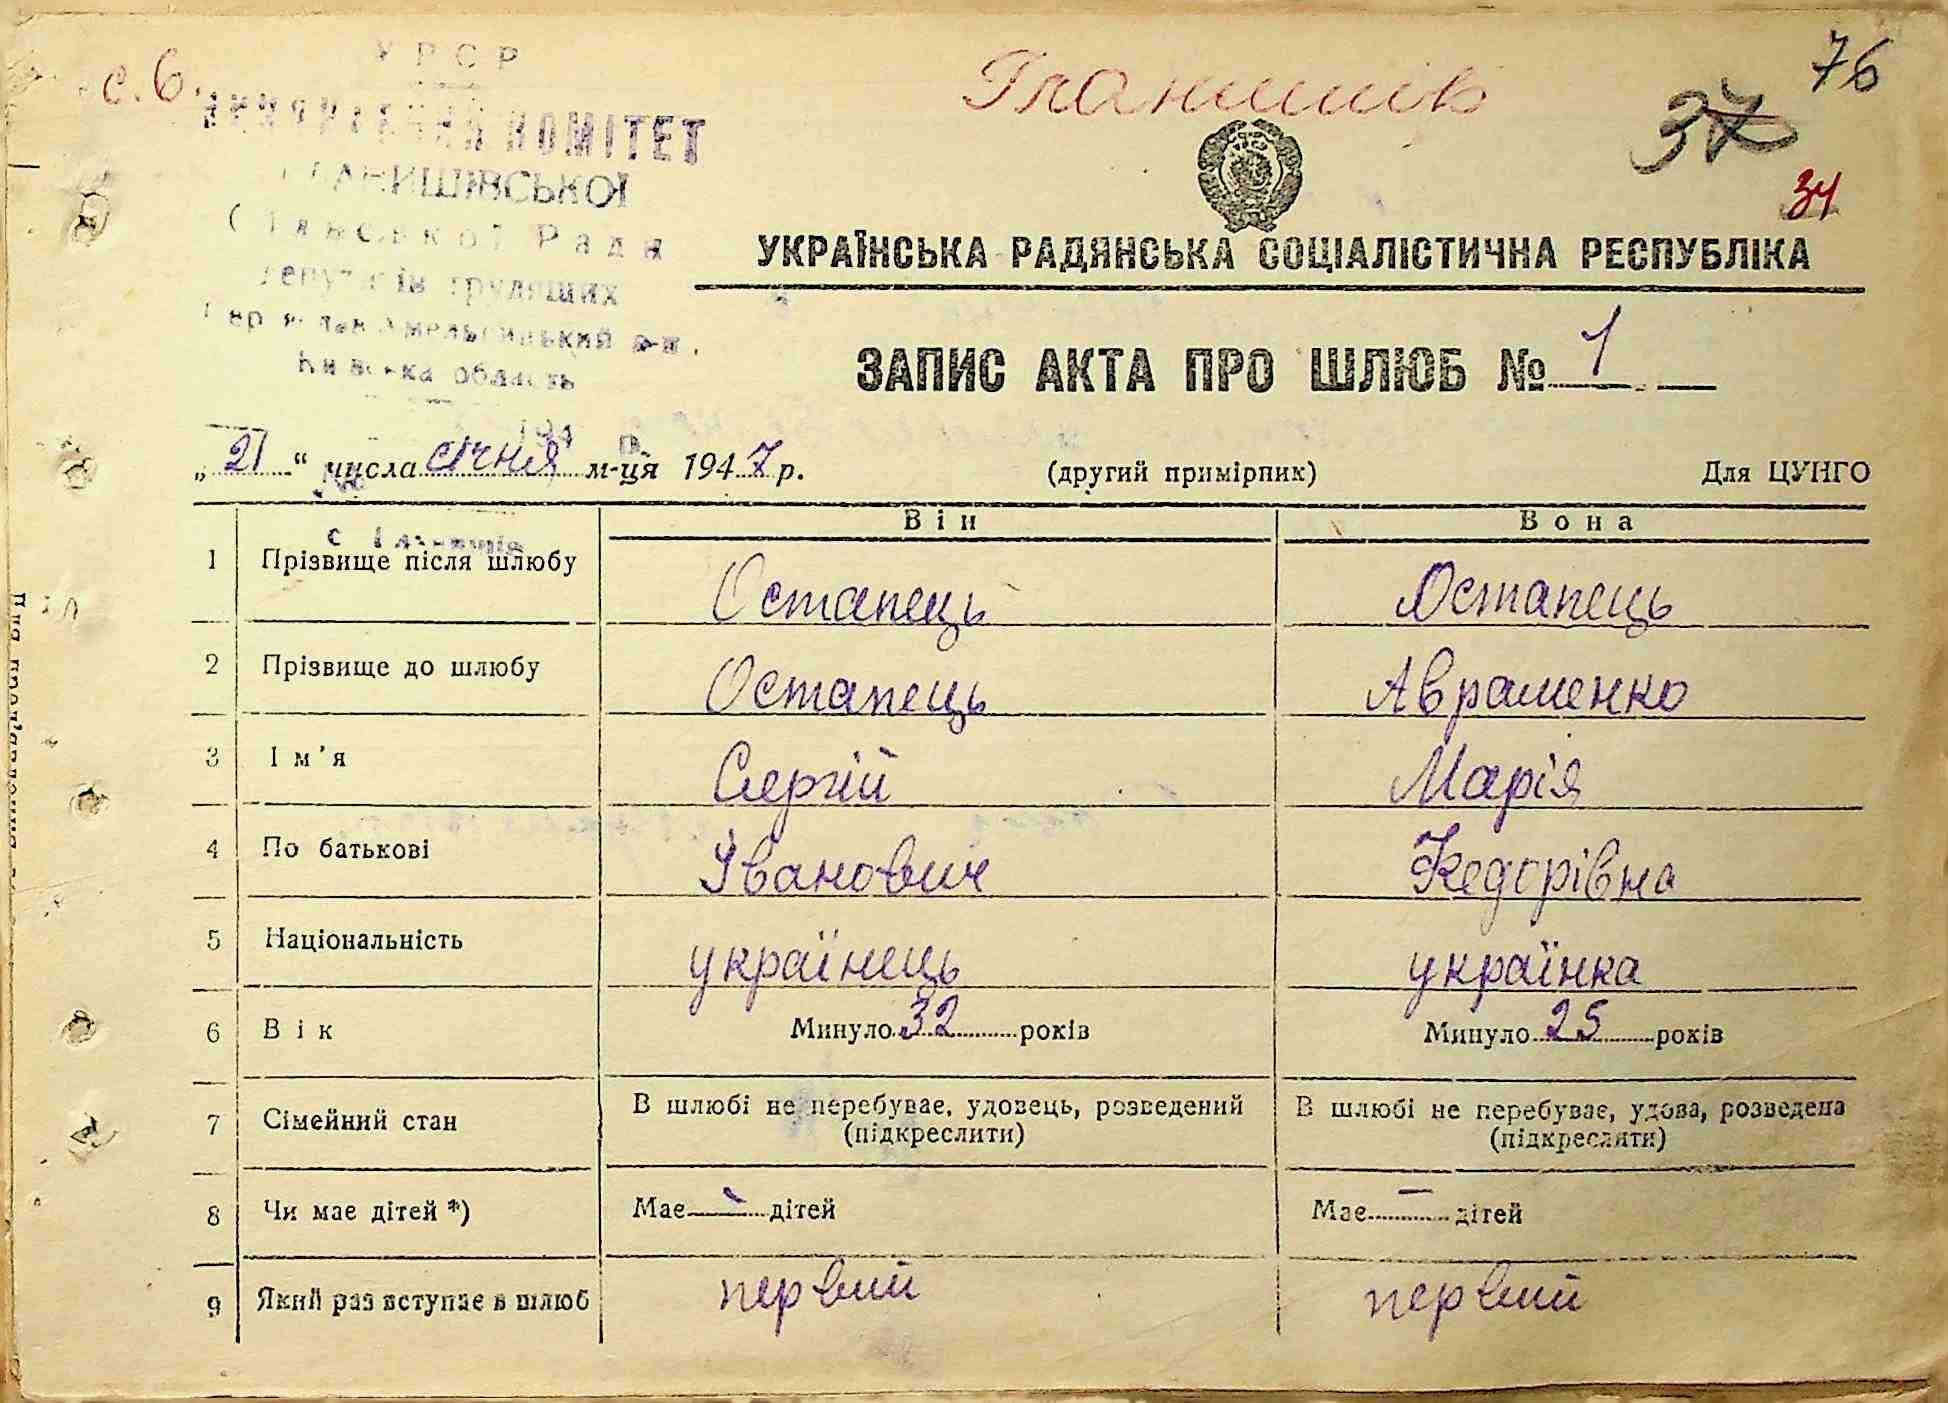 с. В. Гланишів 76
37
34
УРСР
ВИКОНАВЧИЙ КОМІТЕТ
ГЛАНИШІВСЬКОЇ
Сільської Ради
депутатів трудящих
область
УКРАЇНСЬКА РАДЯНСЬКА СОЦІАЛІСТИЧНА РЕСПУБЛІКА
ЗАПИС АКТА ПРО ШЛЮБ № 1
„21“ числа січня м-ця 1947 р. (другий примірник) Для ЦУНГО
Він Вона
1 Прізвище після шлюбу Остапець Остапець
2 Прізвище до шлюбу Остапець Авраменко
3 Ім'я Сергій Марія
4 По батькові Іванович Федорівна
5 Національність українець українка
6 Вік Минуло 32 років Минуло 25 років
7 Сімейний стан В шлюбі не перебуває, удовець, розведений В шлюбі не перебуває, удова, розведена
(підкреслити) (підкреслити)
8 Чи має дітей *) Має - дітей Має - дітей
9 Який раз вступає в шлюб первий первий